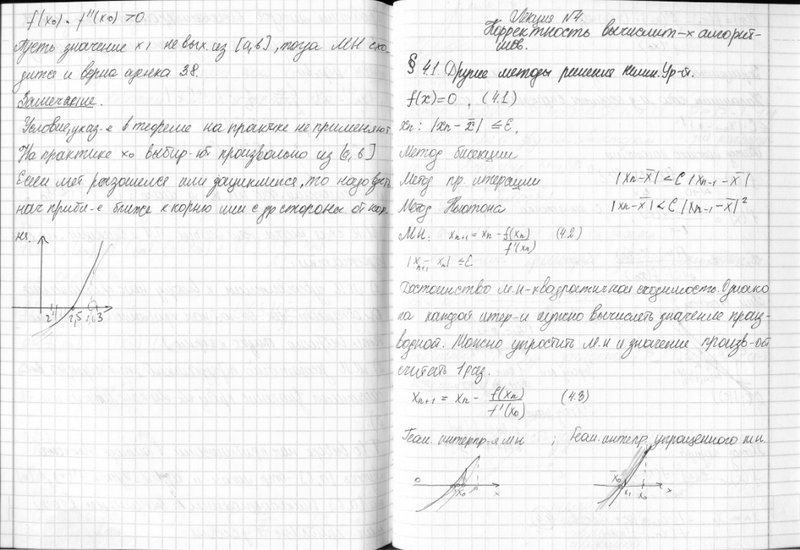 f(x₀) · f''(x₀) > 0
Пусть значение x₁ не вых. из [a,b], тогда МН схо-
дится и верна оценка 3.8.
Замечание.
Условие, указ-е в теореме на практике не применяют
На практике x₀ выбир-ют произвольно из [a, b]
Если мет. разошелся или зациклился, то надо взять
нач. прибл-е ближе к корню или с др стороны от кор-
ня.
2 2,5 3
Лекция №4.
Корректность вычислит-х алгорит-
мов.
§ 4.1 Другие методы решения нелин. Ур-й.
f(x)=0, (4.1)
xn: |xn - x̄| ≤ ε,
Метод бисекции
Метод пр. итерации |xn - x̄| ≤ C |xn-1 - x̄|
Метод Ньютона |xn - x̄| ≤ C |xn-1 - x̄|²
МН: xn+1 = xn - f(xn)/f'(xn) (4.2)
|xn+1 - xn| ≤ ε
Достоинство м.н - квадратичная сходимость. Однако
на каждой итер-и нужно вычислеть значение произ-
водной. Можно упростить м.н и значение произв-ой
считать 1 раз.
xn+1 = xn - f(xn)/f'(x₀) (4.3)
Геом. интерпр-я мн ; Геом. интерпр. упрощенного мн.
0 x₀ x x₀ x₁ x₀ x